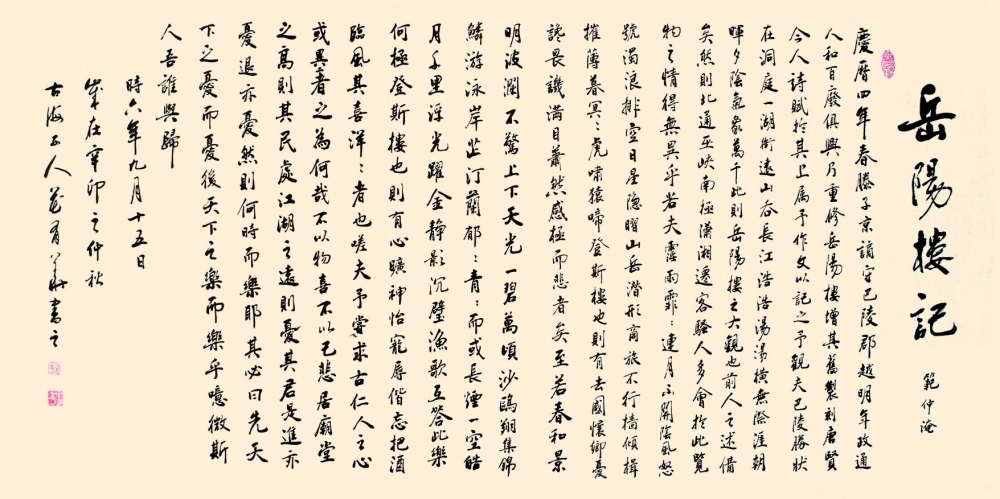 岳陽樓記
範仲淹
慶曆四年春滕子京謫守巴陵郡越明年政通
人和百廢俱興乃重修岳陽樓增其舊製刻唐賢
今人詩賦於其上属予作文以記之予觀夫巴陵勝状
在洞庭一湖銜遠山吞長江浩浩湯湯橫無際涯朝
暉夕陰氣象萬千此則岳陽樓之大觀也前人之述備
矣然則北通巫峽南極瀟湘遷客騷人多會於此覽
物之情得無異乎若夫霪雨霏〻連月不開陰風怒
號濁浪排空日星隐曜山岳潛形商旅不行檣傾楫
摧薄暮冥〻虎嘯猿啼登斯樓也則有去國懷鄉憂
讒畏譏滿目蕭然感極而悲者矣至若春和景
明波瀾不驚上下天光一碧萬頃沙鷗翔集錦
鱗游泳岸芷汀蘭郁〻青〻而或長煙一空皓
月千里浮光躍金静影沉璧漁歌互答此樂
何極登斯樓也則有心曠神怡寵辱偕忘把酒
臨風其喜洋〻者也嗟夫予嘗求古仁人之心
或異者之為何哉不以物喜不以己悲居廟堂
之高則其民處江湖之遠則憂其君是進亦
憂退亦憂然則何時而樂耶其必曰先天
下之憂而憂後天下之樂而樂乎噫微斯
人吾誰與歸
時六年九月十五日
歲在辛卯之仲秋
古海 人 有 書之